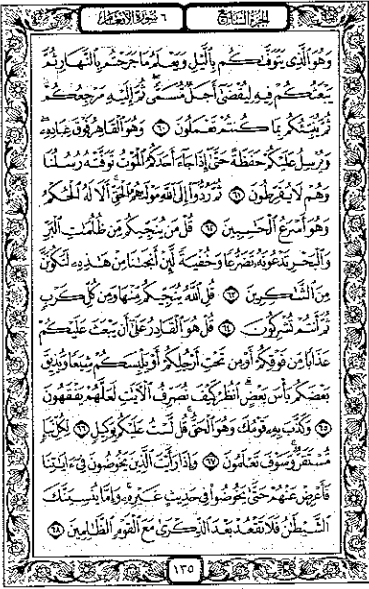 الجزء السابع
٦ سورة الأنعام
وَهُوَ الَّذِي يَتَوَفَّىٰكُم بِالَّيْلِ وَيَعْلَمُ مَا جَرَحْتُم بِالنَّهَارِ ثُمَّ
يَبْعَثُكُمْ فِيهِ لِيُقْضَىٰ أَجَلٌ مُّسَمًّى ثُمَّ إِلَيْهِ مَرْجِعُكُمْ
ثُمَّ يُنَبِّئُكُم بِمَا كُنتُمْ تَعْمَلُونَ ٦٠ وَهُوَ الْقَاهِرُ فَوْقَ عِبَادِهِ
وَيُرْسِلُ عَلَيْكُمْ حَفَظَةً حَتَّىٰ إِذَا جَاءَ أَحَدَكُمُ الْمَوْتُ تَوَفَّتْهُ رُسُلُنَا
وَهُمْ لَا يُفَرِّطُونَ ٦١ ثُمَّ رُدُّوا إِلَى اللَّهِ مَوْلَىٰهُمُ الْحَقِّ أَلَا لَهُ الْحُكْمُ
وَهُوَ أَسْرَعُ الْحَٰسِبِينَ ٦٢ قُلْ مَن يُنَجِّيكُم مِّن ظُلُمَٰتِ الْبَرِّ
وَالْبَحْرِ تَدْعُونَهُ تَضَرُّعًا وَخُفْيَةً لَّئِنْ أَنجَىٰنَا مِنْ هَٰذِهِ لَنَكُونَنَّ
مِنَ الشَّٰكِرِينَ ٦٣ قُلِ اللَّهُ يُنَجِّيكُم مِّنْهَا وَمِن كُلِّ كَرْبٍ
ثُمَّ أَنتُمْ تُشْرِكُونَ ٦٤ قُلْ هُوَ الْقَادِرُ عَلَىٰ أَن يَبْعَثَ عَلَيْكُمْ
عَذَابًا مِّن فَوْقِكُمْ أَوْ مِن تَحْتِ أَرْجُلِكُمْ أَوْ يَلْبِسَكُمْ شِيَعًا وَيُذِيقَ
بَعْضَكُم بَأْسَ بَعْضٍ انظُرْ كَيْفَ نُصَرِّفُ الْآيَٰتِ لَعَلَّهُمْ يَفْقَهُونَ
٦٥ وَكَذَّبَ بِهِ قَوْمُكَ وَهُوَ الْحَقُّ قُل لَّسْتُ عَلَيْكُم بِوَكِيلٍ ٦٦ لِّكُلِّ نَبَإٍ
مُّسْتَقَرٌّ وَسَوْفَ تَعْلَمُونَ ٦٧ وَإِذَا رَأَيْتَ الَّذِينَ يَخُوضُونَ فِي آيَٰتِنَا
فَأَعْرِضْ عَنْهُمْ حَتَّىٰ يَخُوضُوا فِي حَدِيثٍ غَيْرِهِ وَإِمَّا يُنسِيَنَّكَ
الشَّيْطَٰنُ فَلَا تَقْعُدْ بَعْدَ الذِّكْرَىٰ مَعَ الْقَوْمِ الظَّٰلِمِينَ ٦٨
١٣٥